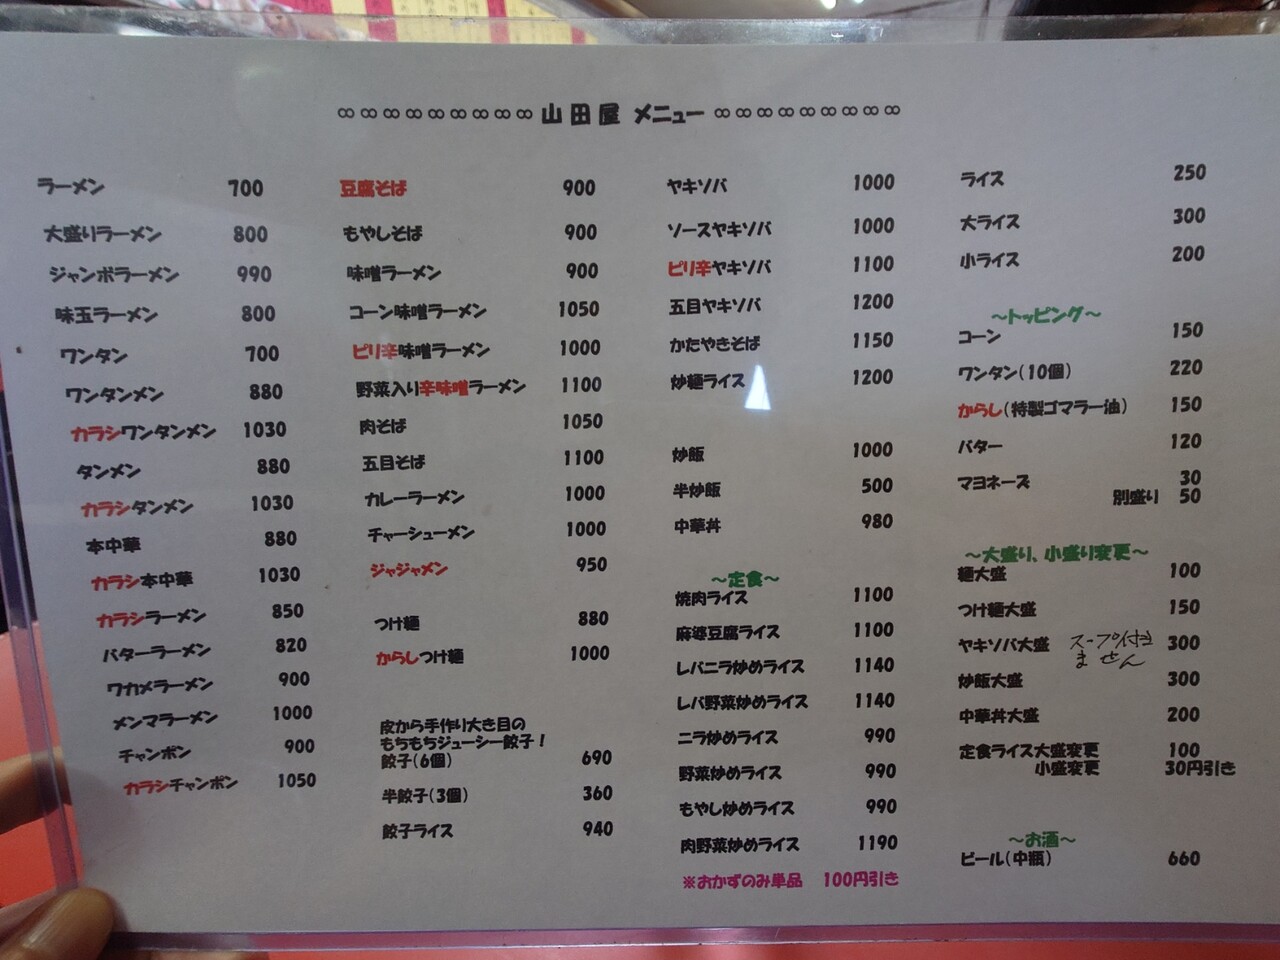 ∞∞∞∞∞∞∞∞∞山田屋 メニュー∞∞∞∞∞∞∞∞∞
ラーメン 700
大盛りラーメン 800
ジャンボラーメン 990
味玉ラーメン 800
ワンタン 700
ワンタンメン 880
カラシワンタンメン 1030
タンメン 880
カラシタンメン 1030
本中華 880
カラシ本中華 1030
カラシラーメン 850
バターラーメン 820
ワカメラーメン 900
メンマラーメン 1000
チャンポン 900
カラシチャンポン 1050
豆腐そば 900
もやしそば 900
味噌ラーメン 900
コーン味噌ラーメン 1050
ピリ辛味噌ラーメン 1000
野菜入り辛味噌ラーメン 1100
肉そば 1050
五目そば 1100
カレーラーメン 1000
チャーシューメン 1000
ジャジャメン 950
つけ麺 880
からしつけ麺 1000
皮から手作り大き目の
もちもちジューシー餃子！
餃子（6個） 690
半餃子（3個） 360
餃子ライス 940
ヤキソバ 1000
ソースヤキソバ 1000
ピリ辛ヤキソバ 1100
五目ヤキソバ 1200
かたやきそば 1150
炒麺ライス 1200
炒飯 1000
半炒飯 500
中華丼 980
～定食～
焼肉ライス 1100
麻婆豆腐ライス 1100
レバニラ炒めライス 1140
レバ野菜炒めライス 1140
ニラ炒めライス 990
野菜炒めライス 990
もやし炒めライス 990
肉野菜炒めライス 1190
※おかずのみ単品 100円引き
ライス 250
大ライス 300
小ライス 200
～トッピング～
コーン 150
ワンタン（10個） 220
からし（特製ゴマラー油） 150
バター 120
マヨネーズ 30
別盛り 50
～大盛り、小盛り変更～
麺大盛 100
つけ麺大盛 150
ヤキソバ大盛 スープ付き 300
ません
炒飯大盛 300
中華丼大盛 200
定食ライス大盛変更 100
小盛変更 30円引き
～お酒～
ビール（中瓶） 660